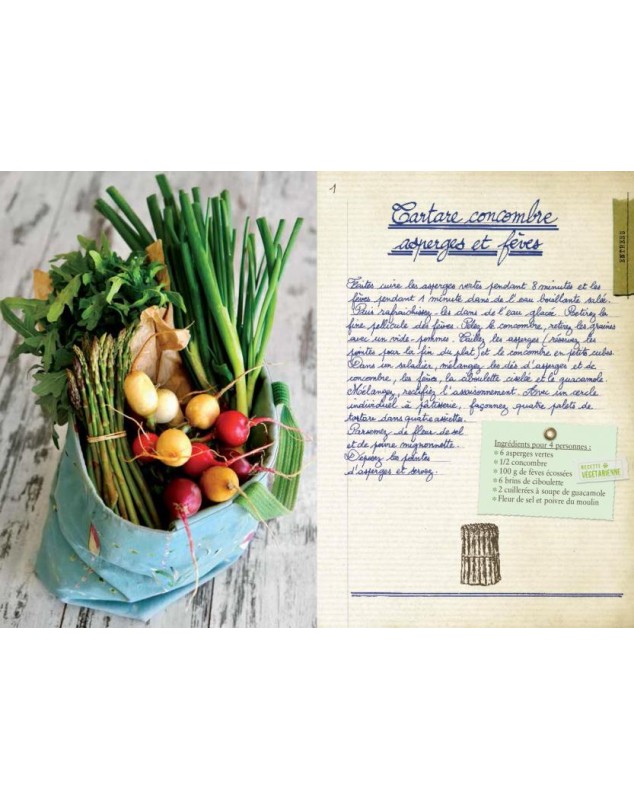 1
Tartare concombre
asperges et fèves
ENTREES
Faites cuire les asperges vertes pendant 8 minutes et les
fèves pendant 1 minute dans de l'eau bouillante salée.
Puis rafraichissez-les dans de l'eau glacée. Retirez la
fine pellicule des fèves. Pelez le concombre, retirez les graines
avec un vide-pommes. Taillez les asperges (réservez les
pointes pour la fin du plat) et le concombre en petits cubes.
Dans un saladier, mélangez les dés d'asperges et de
concombre, les fèves, la ciboulette ciselée et le guacamole.
Mélangez, rectifiez l'assaisonnement. Avec un cercle
individuel à pâtisserie, façonnez quatre palets de
tartare dans quatre assiettes.
Parsemez de fleur de sel
et de poivre mignonnette.
Déposez les pointes
d'asperges et servez.
Ingrédients pour 4 personnes :
6 asperges vertes
1/2 concombre
100 g de fèves écossées
6 brins de ciboulette
2 cuillerées à soupe de guacamole
Fleur de sel et poivre du moulin
RECETTE
VEGETARIENNE